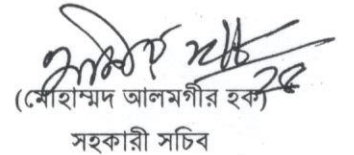 (মোহাম্মদ আলমগীর হক)
সহকারী সচিব